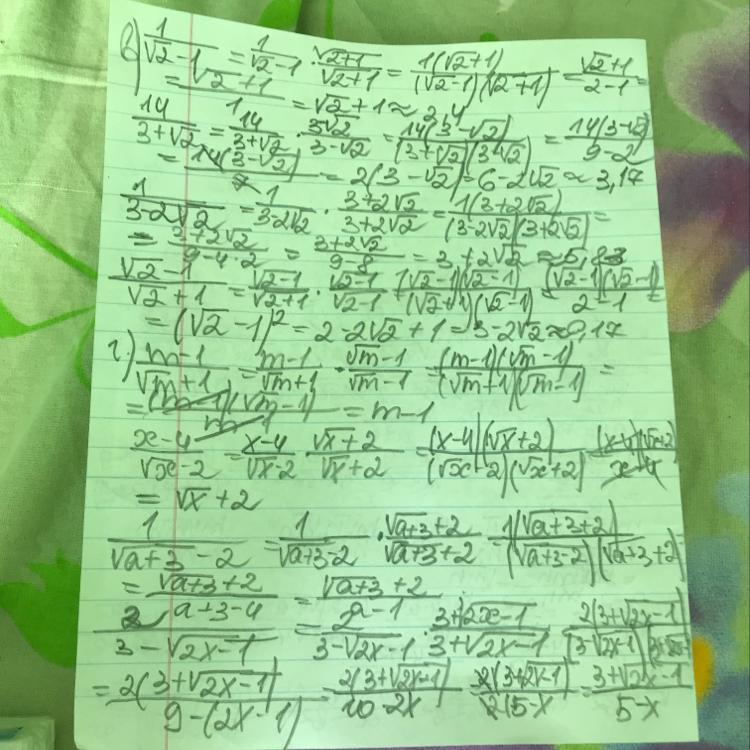 в) 1/(√2-1) = 1/(√2-1) · (√2+1)/(√2+1) = 1(√2+1)/((√2-1)(√2+1)) = (√2+1)/(2-1) =
= (√2+1)/1 = √2+1 ≈ 2,4
14/(3+√2) = 14/(3+√2) · 3√2/(3-√2) = 14(3-√2)/((3+√2)(3-√2)) = 14(3-√2)/(9-2)
= 14(3-√2)/7 = 2(3-√2) = 6-2√2 ≈ 3,17
1/(3-2√2) = 1/(3-2√2) · (3+2√2)/(3+2√2) = 1(3+2√2)/((3-2√2)(3+2√2) =
= (3+2√2)/(9-4·2) = (3+2√2)/(9-8) = 3+2√2 ≈ 5,83
(√2-1)/(√2+1) = (√2-1)/(√2+1) · (√2-1)/(√2-1) = (√2-1)(√2-1)/((√2+1)(√2-1)) = (√2-1)(√2-1)/(2-1) =
= (√2-1)² = 2-2√2+1 = 3-2√2 ≈ 0,17
г) (m-1)/(√m+1) = (m-1)/(√m+1) · (√m-1)/(√m-1) = (m-1)(√m-1)/((√m+1)(√m-1)) =
= (m-1)(√m-1)/(m-1) = m-1
(x-4)/(√x-2) = (x-4)/(√x-2) · (√x+2)/(√x+2) = (x-4)(√x+2)/((√x-2)(√x+2)) = (x-4)(√x+2)/(x-4)
= √x+2
1/(√(a+3)-2) = 1/(√(a+3)-2) · (√(a+3)+2)/(√(a+3)+2) = 1(√(a+3)+2)/((√(a+3)-2)(√(a+3)+2)) =
= (√(a+3)+2)/(a+3-4) = (√(a+3)+2)/(a-1)
2/(3-√(2x-1)) = 2/(3-√(2x-1)) · (3+√(2x-1))/(3+√(2x-1)) = 2(3+√(2x-1))/((3-√(2x-1))(3+√(2x-1)))
= 2(3+√(2x-1))/(9-(2x-1)) = 2(3+√(2x-1))/(10-2x) = 2(3+√(2x-1))/(2(5-x)) = (3+√(2x-1))/(5-x)